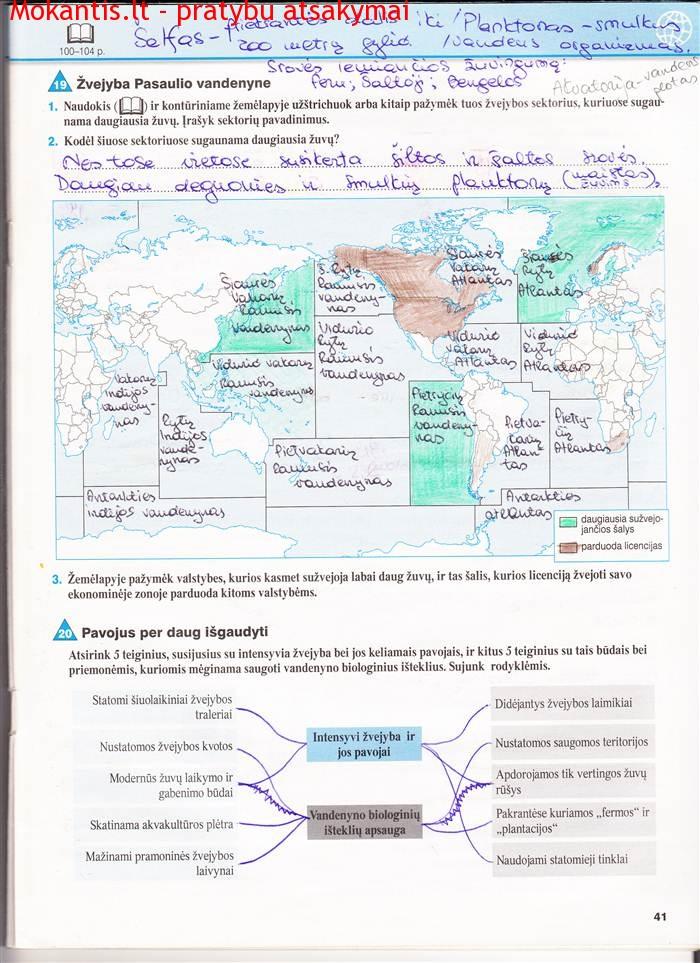 Mokantis.lt - pratybų atsakymai
Šelfas - iki / Planktonas - smulkūs
200 metrų gylio. / vandens organizmai.
100–104 p.
Srovės lemiančios žuvingumą:
Peru; Šaltoji; Bengelos
Akvatorija - vandens
plotas
19 Žvejyba Pasaulio vandenyne
1. Naudokis ( ) ir kontūriniame žemėlapyje užštrichuok arba kitaip pažymėk tuos žvejybos sektorius, kuriuose sugau-
nama daugiausia žuvų. Įrašyk sektorių pavadinimus.
2. Kodėl šiuose sektoriuose sugaunama daugiausia žuvų?
Nes tose vietose susikerta šiltos ir šaltos srovės.
Daugiau deguonies ir smulkių planktonų (maistas
žuvims).
Šiaurės
Vakarų
Ramusis
vandenynas
Š. Rytų
Ramusis
vandeny-
nas
Šiaurės
Vakarų
Atlantas
Šiaurės
Rytų
Atlantas
Vidurio vakarų
Ramusis
vandenynas
Vidurio
Rytų
Ramusis
vandenynas
Vidurio
vakarų
Atlantas
Vidurio
Rytų
Atlantas
Vakarų
Indijos
vandeny-
nas
Rytų
Indijos
vande-
nynas
Pietvakarių
Ramusis
vandenynas
Pietryčių
Ramusis
vandeny-
nas
Pietva-
karių
Atlan-
tas
Pietry-
čių
Atlantas
Antarkties
indijos vandenynas
Antarkties
atlantas
daugiausia sužvejo-
jančios šalys
parduoda licencijas
3. Žemėlapyje pažymėk valstybes, kurios kasmet sužvejoja labai daug žuvų, ir tas šalis, kurios licenciją žvejoti savo
ekonominėje zonoje parduoda kitoms valstybėms.
20 Pavojus per daug išgaudyti
Atsirink 5 teiginius, susijusius su intensyvia žvejyba bei jos keliamais pavojais, ir kitus 5 teiginius su tais būdais bei
priemonėmis, kuriomis mėginama saugoti vandenyno biologinius išteklius. Sujunk rodyklėmis.
Statomi šiuolaikiniai žvejybos
traleriai
Nustatomos žvejybos kvotos
Modernūs žuvų laikymo ir
gabenimo būdai
Skatinama akvakultūros plėtra
Mažinami pramoninės žvejybos
laivynai
Intensyvi žvejyba ir
jos pavojai
Vandenyno biologinių
išteklių apsauga
Didėjantys žvejybos laimikiai
Nustatomos saugomos teritorijos
Apdorojamos tik vertingos žuvų
rūšys
Pakrantėse kuriamos „fermos“ ir
„plantacijos“
Naudojami statomieji tinklai
41